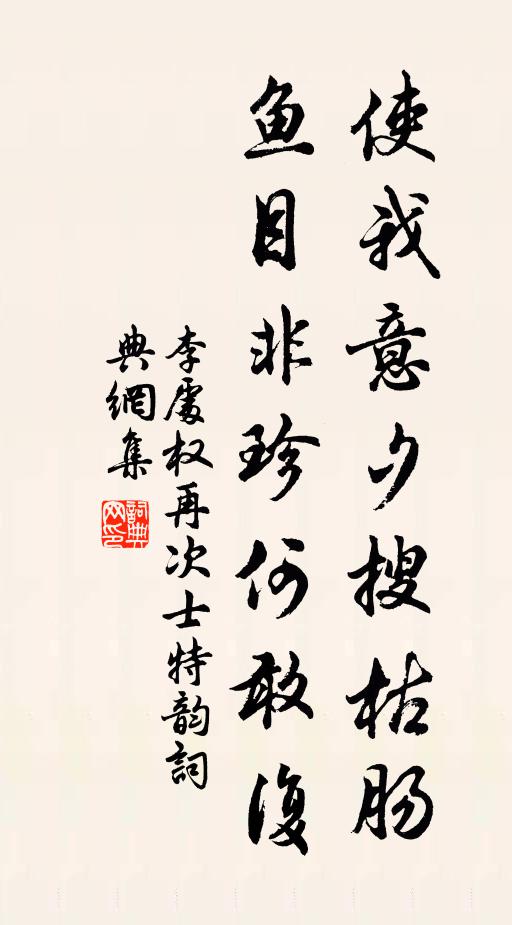 使我意夕搜枯肠
鱼目非珍何敢復
李處权再次士特韵詞
典網集
詞典
网印